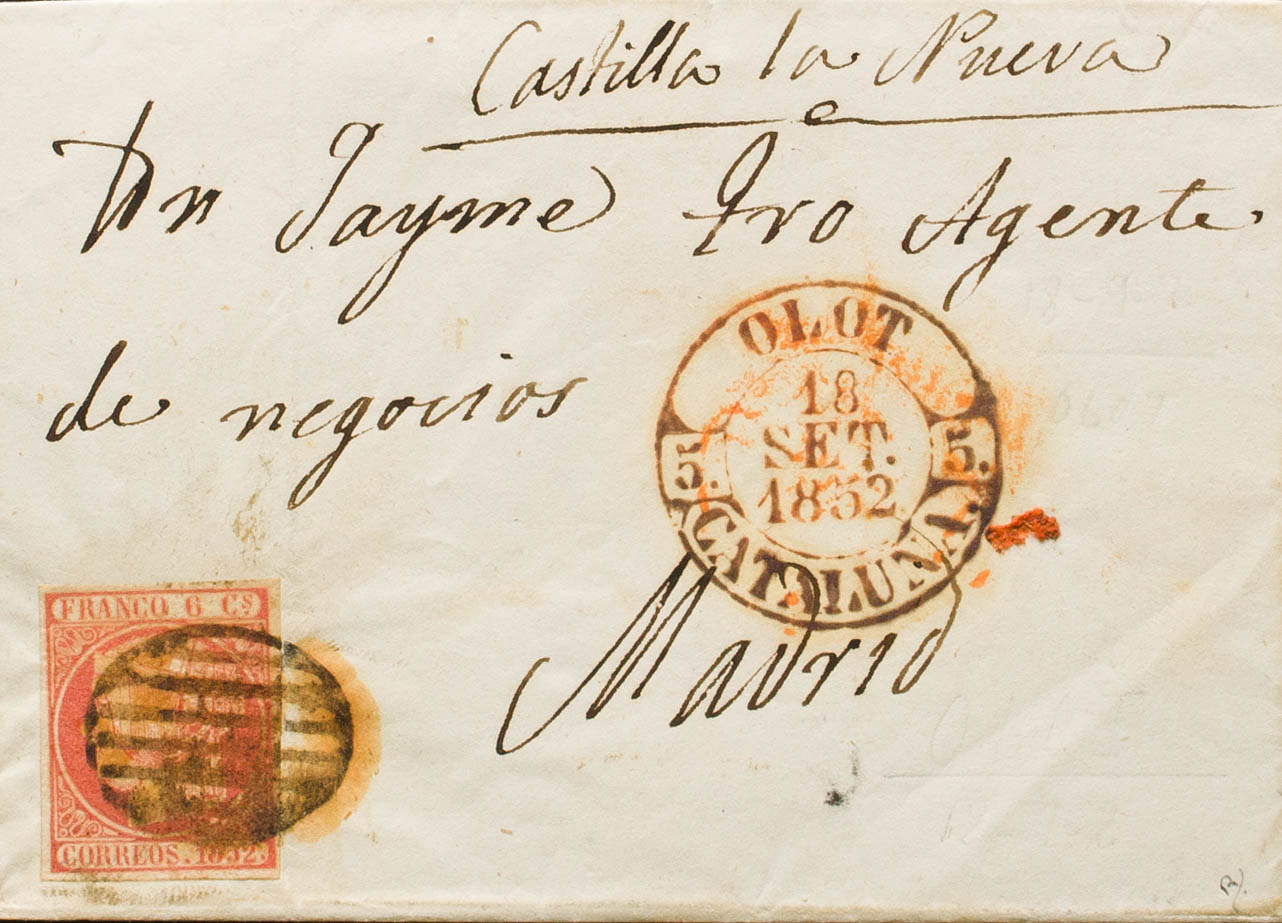 Castilla la Nueva
Dn Jayme Fro Agente
de negocios
OLOT
18
SET.
1852
5. 5.
CATALUÑA.
Madrid
FRANCO 6 Cs
CORREOS. 1852.